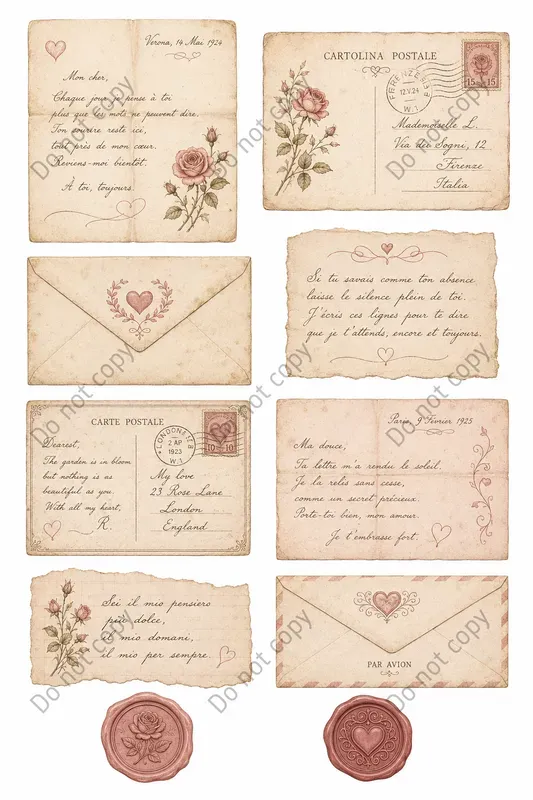 Verona, 14 Mai 1924
Mon cher,
Chaque jour je pense à toi
plus que les mots ne peuvent dire.
Ton sourire reste ici,
tout près de mon cœur.
Reviens-moi bientôt.
À toi, toujours.
CARTOLINA POSTALE
FIRENZE
12.V.24
W.1
15 15
Mademoiselle L.
Via dei Sogni, 12
Firenze
Italia
Si tu savais comme ton absence
laisse le silence plein de toi.
J'écris ces lignes pour te dire
que je t'attends, encore et toujours.
CARTE POSTALE
LONDON
2 AP
1923
W.1
10 10
Dearest,
The garden is in bloom
but nothing is as
beautiful as you.
With all my heart,
R.
My love
23 Rose Lane
London
England
Paris, 9 Février 1925
Ma douce,
Ta lettre m'a rendu le soleil.
Je la relis sans cesse,
comme un secret précieux.
Porte-toi bien, mon amour.
Je t'embrasse fort.
Sei il mio pensiero
più dolce,
il mio domani,
il mio per sempre.
PAR AVION
Do not copy
Do not copy
Do not copy
Do not copy
Do not copy
Do not copy
Do not copy
Do not copy
Do not copy
Do not copy
Do not copy
Do not copy